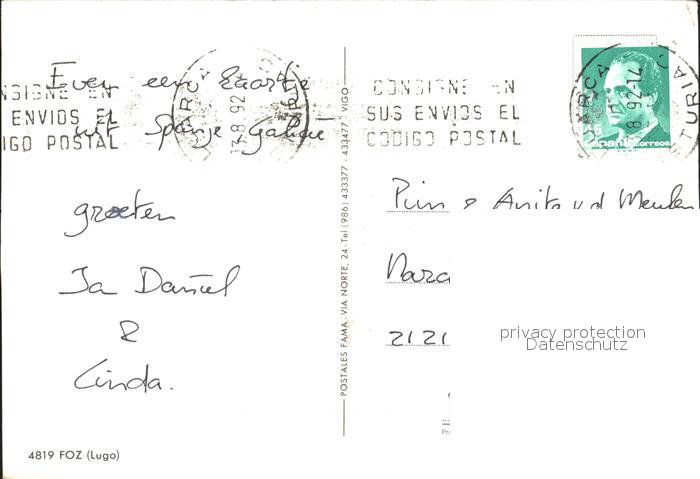 Even een kaartje
uit Spanje Galicië
groeten
Ja Daniel
&
Linda.
4819 FOZ (Lugo)
POSTALES FAMA - VIA NORTE, 24 - Tel (986) 433377 - 433477 - VIGO
CONSIGNE EN
SUS ENVIOS EL
CODIGO POSTAL
NSIGNE EN
ENVIOS EL
IGO POSTAL
13.8 92
8 92-14
España Correos
& Anita v d Meulen
2121
privacy protection
Datenschutz